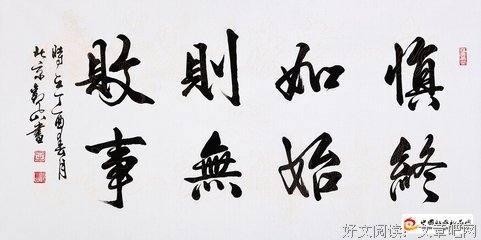 慎終
如始
則無
敗事
時在丁酉春月
北京 書
好文阅读：文章吧网